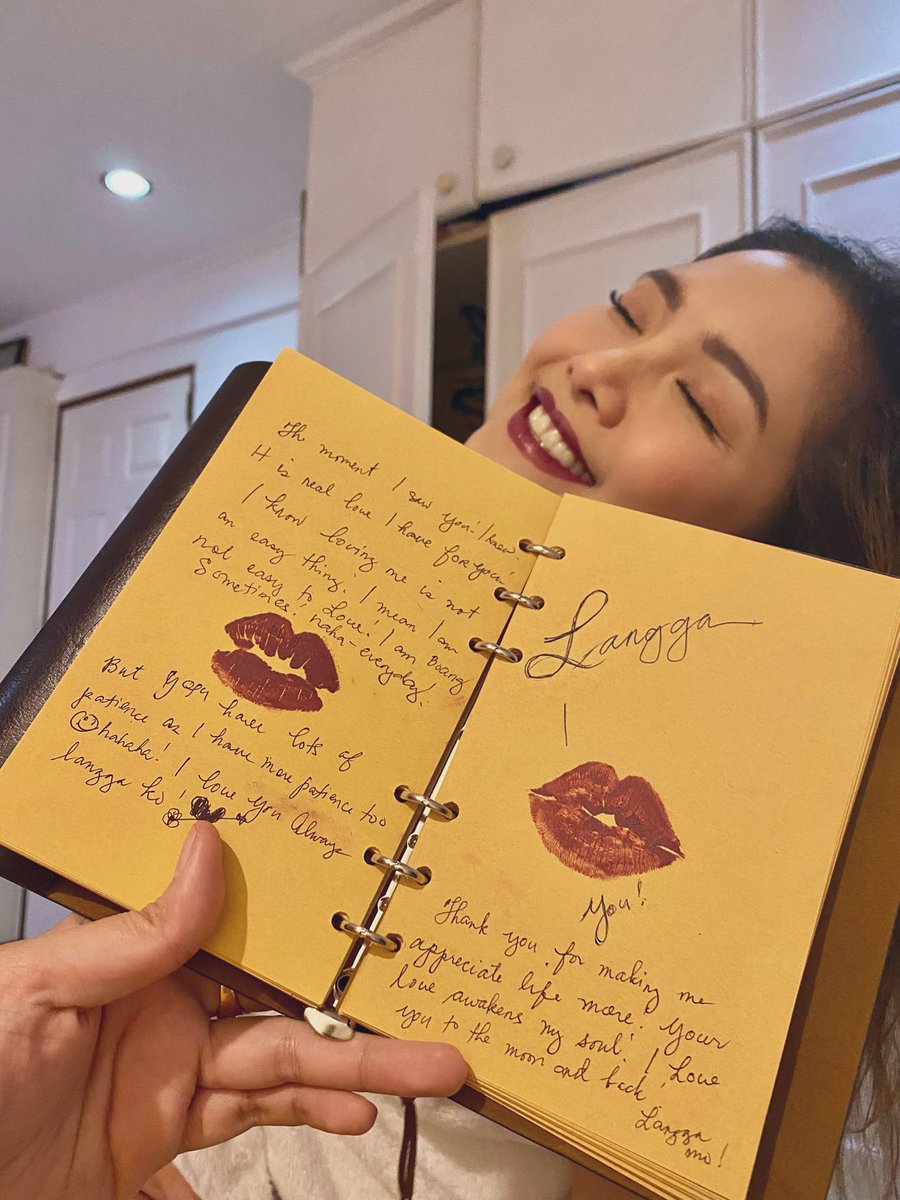 The moment I saw you! I knew
It is real love I have for you!
I know loving me is not
an easy thing! I mean I am
not easy to Love! I am Boang
Sometimes! haha - everyday!
But you have lots of
patience as I have more patience too
hahaha! I love you Always
langga ko!
Langga
I
You!
Thank you for making me
appreciate life more! Your
love awakens my soul! I love
you to the moon and back!
Langga
mo!